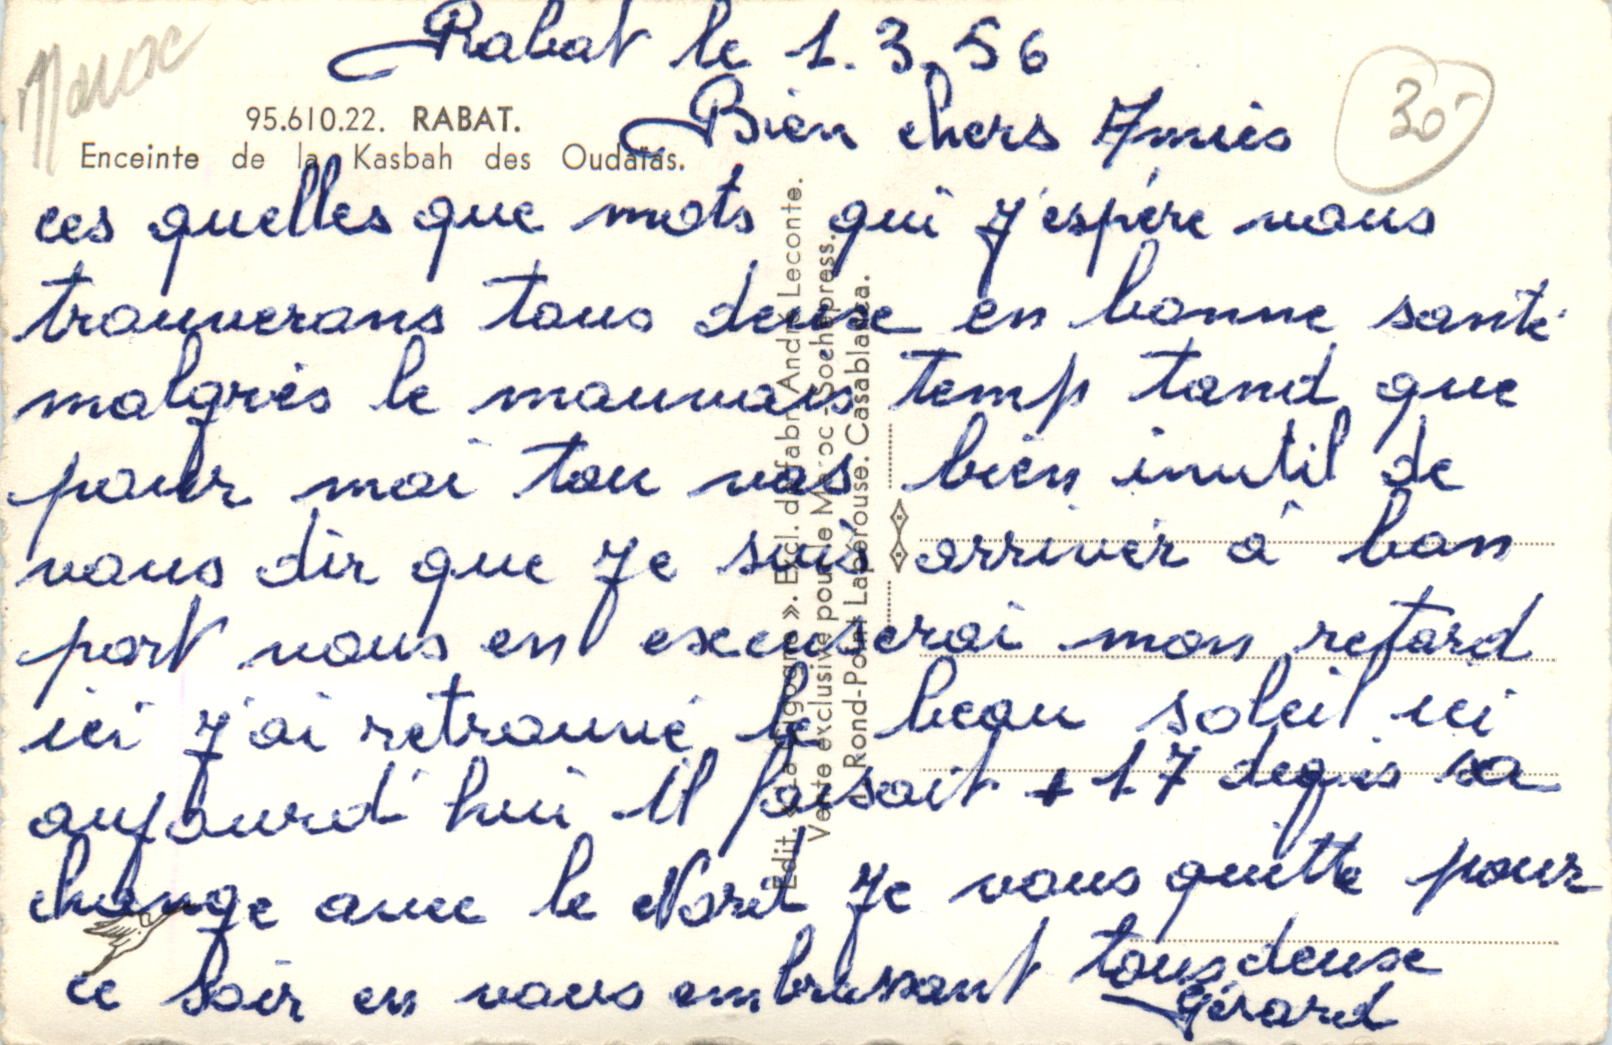 Maroc
Rabat le 1.3.56
95.610.22. RABAT.
Enceinte de la Kasbah des Oudaïas.
Bien chers Amies
30-
ces quelles que mots qui j'espére vous
trouverans tous deuse en bonne santé
malgrés le mauvais temp tand que
pour moi tou vas bien inutil de
vous dir que je suis arriver a bon
port vous en excuserai mon retard
ici j'ai retrouvé le beau soleil ici
aujourd'hui il faisait +17 degis sa
change avec le Nord je vous quitte pour
ce soir en vous embrassant tous deuse
Gérard
Edit. « La Cigogne ». Excl. de fabr. André Leconte.
Vente exclusive pour le Maroc - Sochepress.
Rond-Point Lapérouse. Casablanca.